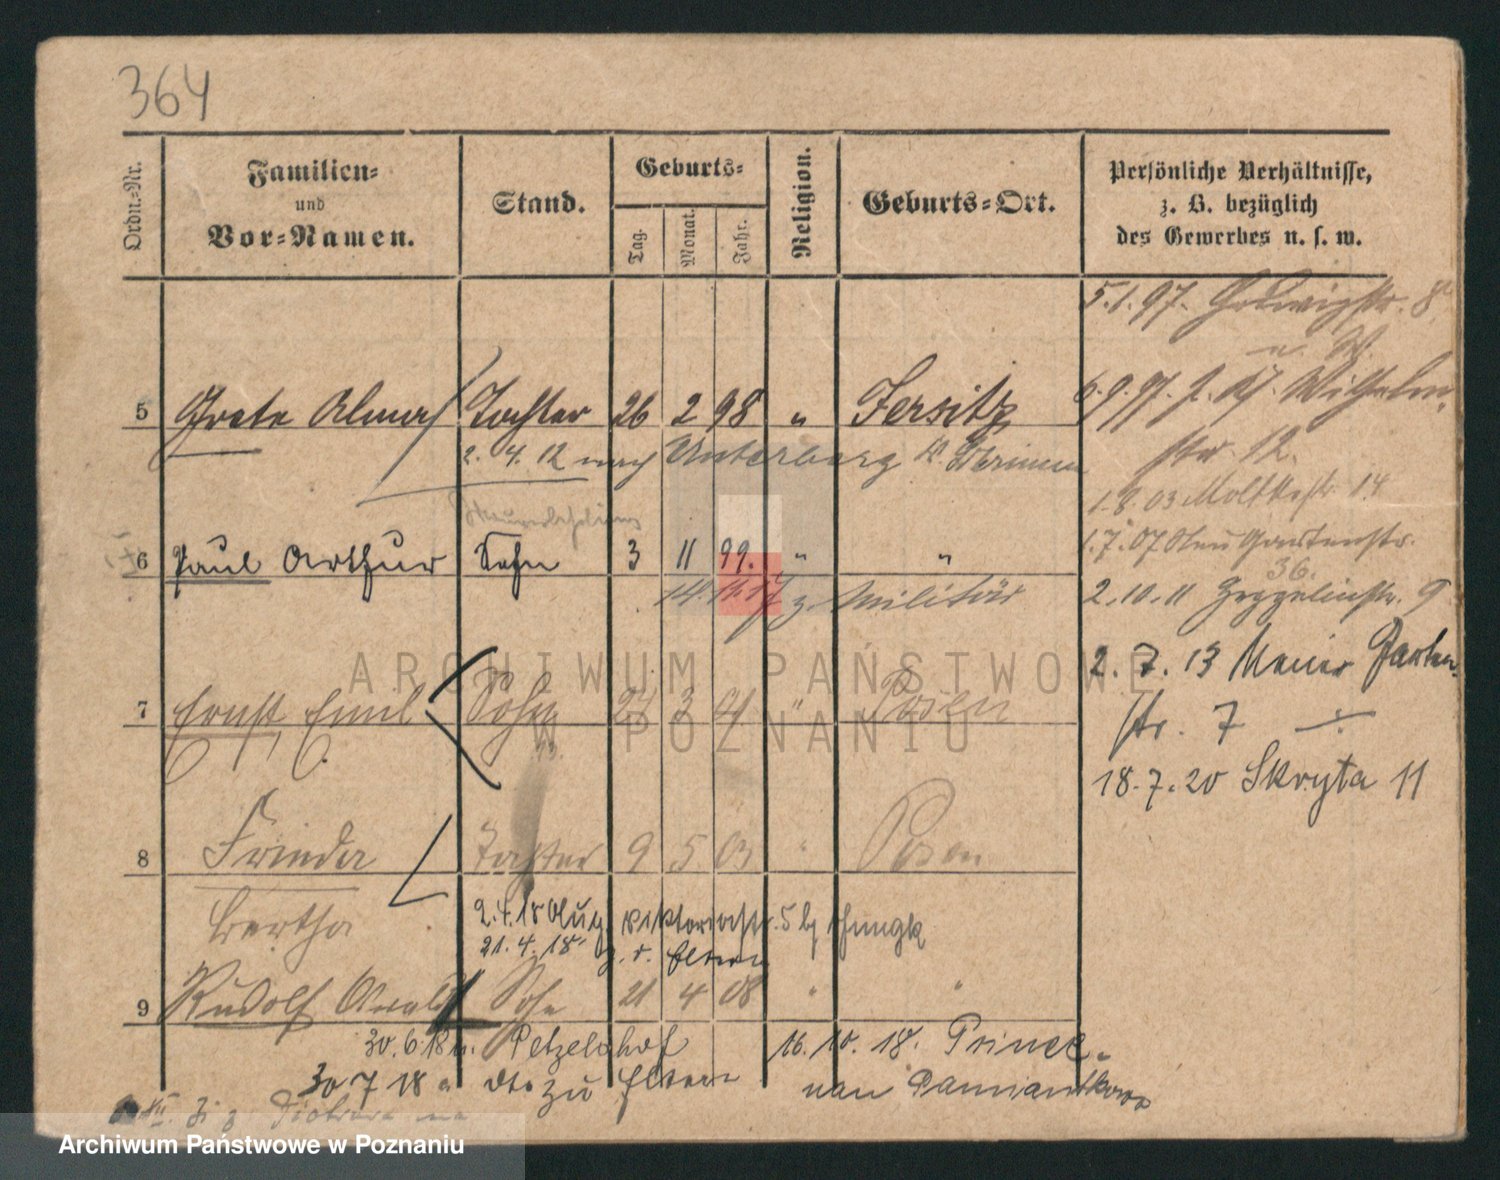 364
Ordn.-Nr.
Familien-
und
Vor-Namen.
Stand.
Geburts-
Tag.
Monat.
Jahr.
Religion.
Geburts-Ort.
Persönliche Verhältnisse,
z. B. bezüglich
des Gewerbes u. s. w.
5.1.97. Hedwigstr. 8
5 Grete Alma Tochter 26 2 98 " Jersitz
6.9.97. Wilhelm-
str 12.
2. 4. 12 nach Unterberg
1.8.03 Moltkestr 14
6 Paul Arthur Sohn 3 11 99. " "
1.7.07 Neu Gartenstr.
36.
14. 11. 17 z. Militär
2.10.11 Zeppelinstr. 9
2. 7. 13 Neue Garten-
str. 7
ARCHIWUM PAŃSTWOWE
W POZNANIU
7 Ernst Emil Sohn 21 3 01 " Posen
18.7.20 Skryta 11
8 Frieda Tochter 9 5 03 " Posen
Bertha
2.4.18 Aug. Viktoriastr. 5 b/
21. 4. 18 z. d. Eltern
9 Rudolf Oswald Sohn 21 4 08 " "
30.6.18 n. Petzelshof
16. 10. 18. Prinz
30 7 18 dto zu Eltern
nan Damiantkowo
Archiwum Państwowe w Poznaniu